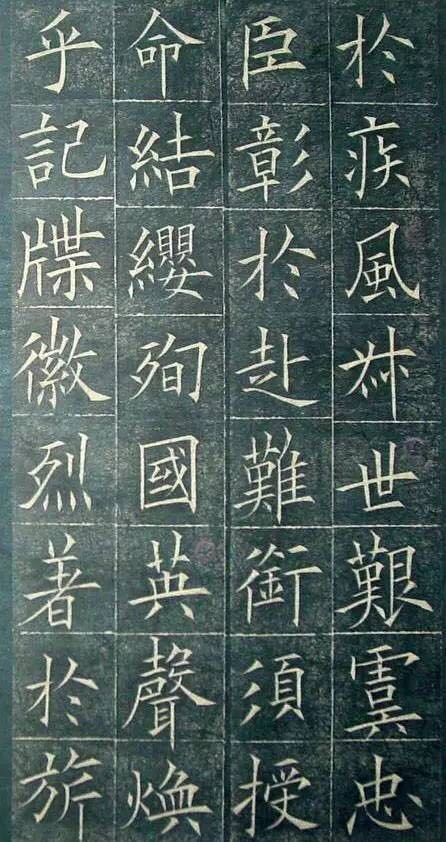 於疾風叔世艱虞忠
臣彰於赴難衘須授
命結纓殉國英聲煥
乎記牒徽烈著於旂